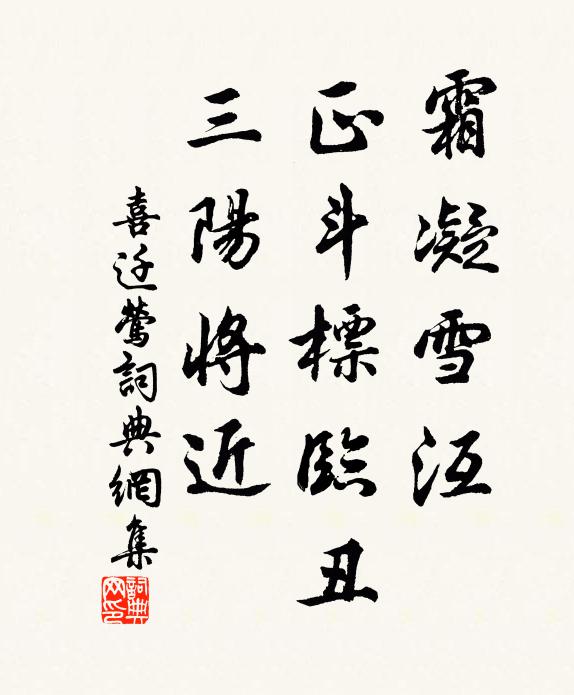 霜凝雪沍
正斗標臨丑
三陽將近
喜迁鶯詞典網集
詞典
网印